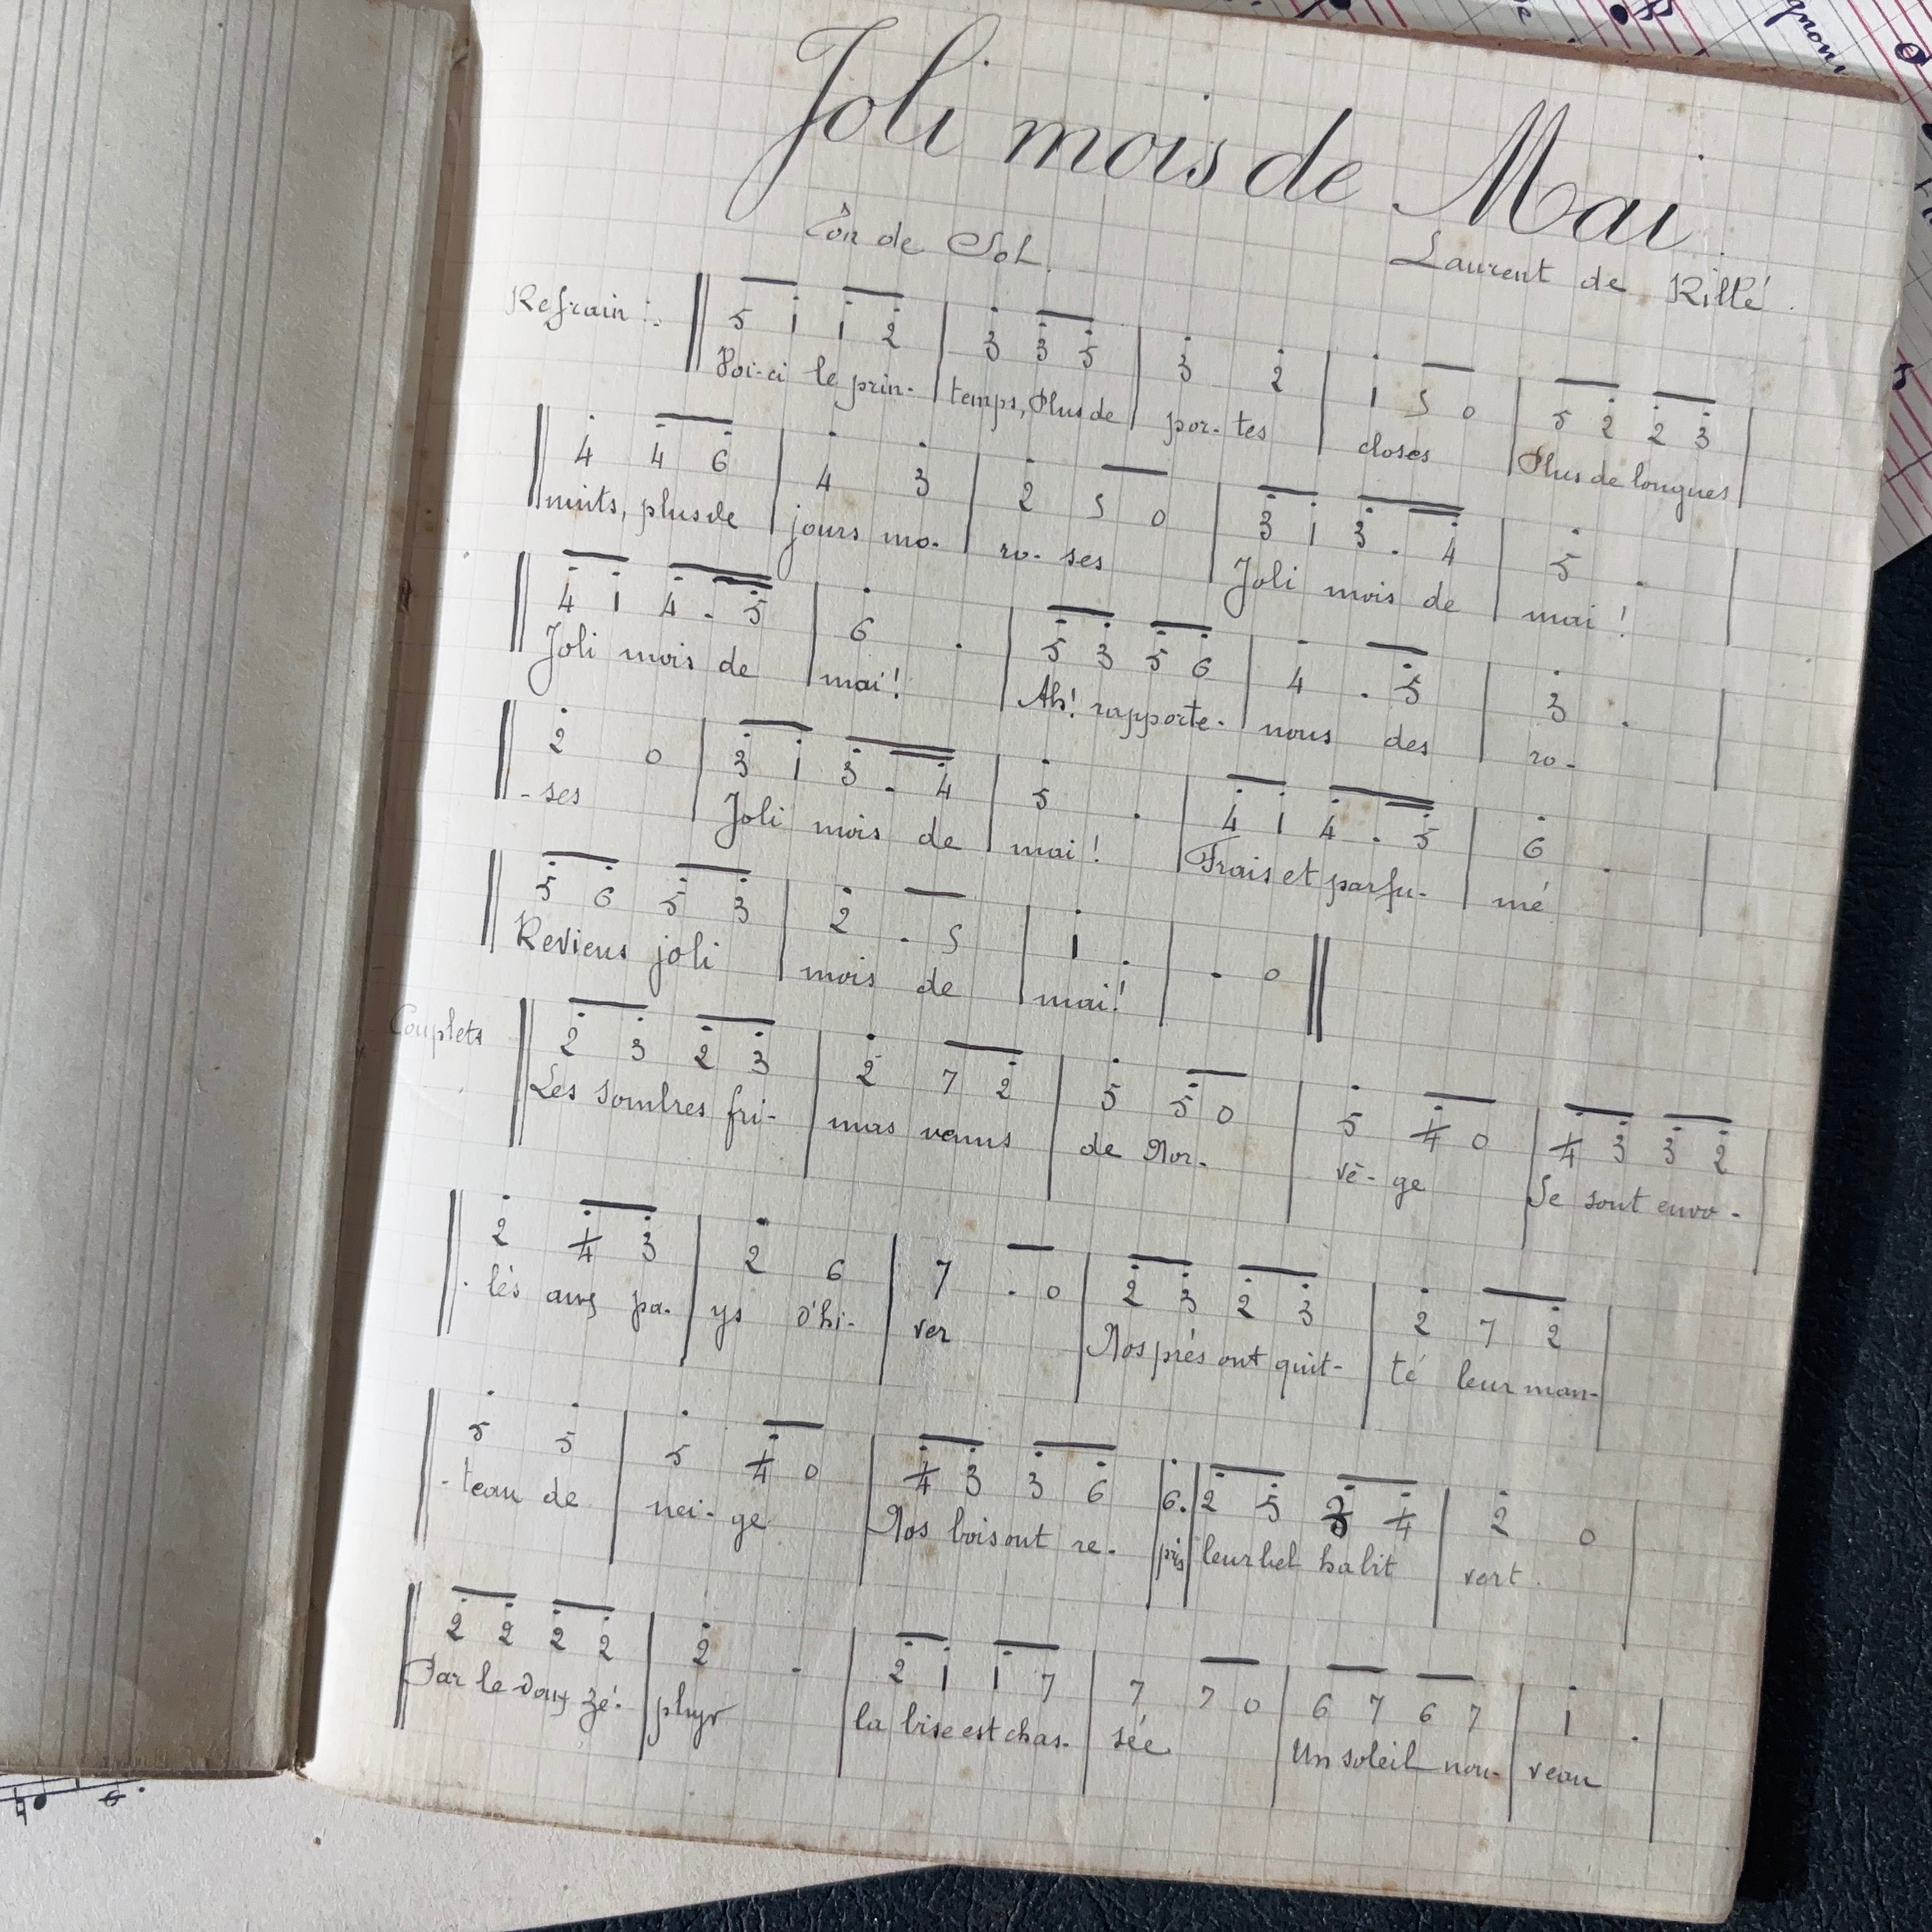 Joli mois de Mai.
Ton de Sol.
Laurent de Rillé.
Refrain :
5 1 1 2 | 3 3 5 | 3 2 | 1 5 0 | 5 2 2 3 |
Voi-ci le prin- | temps, Plus de | por-tes | closes | Plus de longues |
4 4 6 | 4 3 | 2 5 0 | 3 1 3 . 4 | 5 . |
nuits, plus de | jours mo- | ro-ses | Joli mois de | mai ! |
4 1 4 . 5 | 6 . | 5 3 5 6 | 4 . 5 | 3 . |
Joli mois de | mai ! | Ah ! rapporte- | nous des | ro- |
2 0 | 3 1 3 . 4 | 5 . | 4 1 4 . 5 | 6 . |
-ses | Joli mois de | mai ! | Frais et parfu- | mé |
5 6 5 3 | 2 . 5 | 1 . | . 0 ||
Reviens joli | mois de | mai ! |
Couplets
2 3 2 3 | 2 7 2 | 5 5 0 | 5 4 0 | 4 3 3 2 |
Les sombres fri- | mas venus | de Nor- | vè-ge | Se sont envo- |
2 4 3 | 2 6 | 7 . 0 | 2 3 2 3 | 2 7 2 |
-lés aux pa- | ys d'hi- | ver | Nos prés ont quit- | té leur man- |
5 5 | 5 4 0 | 4 3 3 6 | 6 . | 2 5 3 4 | 2 0 |
-teau de | nei-ge | Nos bois ont re- | pris | leur bel habit | vert. |
2 2 2 2 | 2 . | 2 1 1 7 | 7 7 0 | 6 7 6 7 | 1 . |
Par le doux zé- | phyr | la bise est chas- | sée | Un soleil nou- | veau |